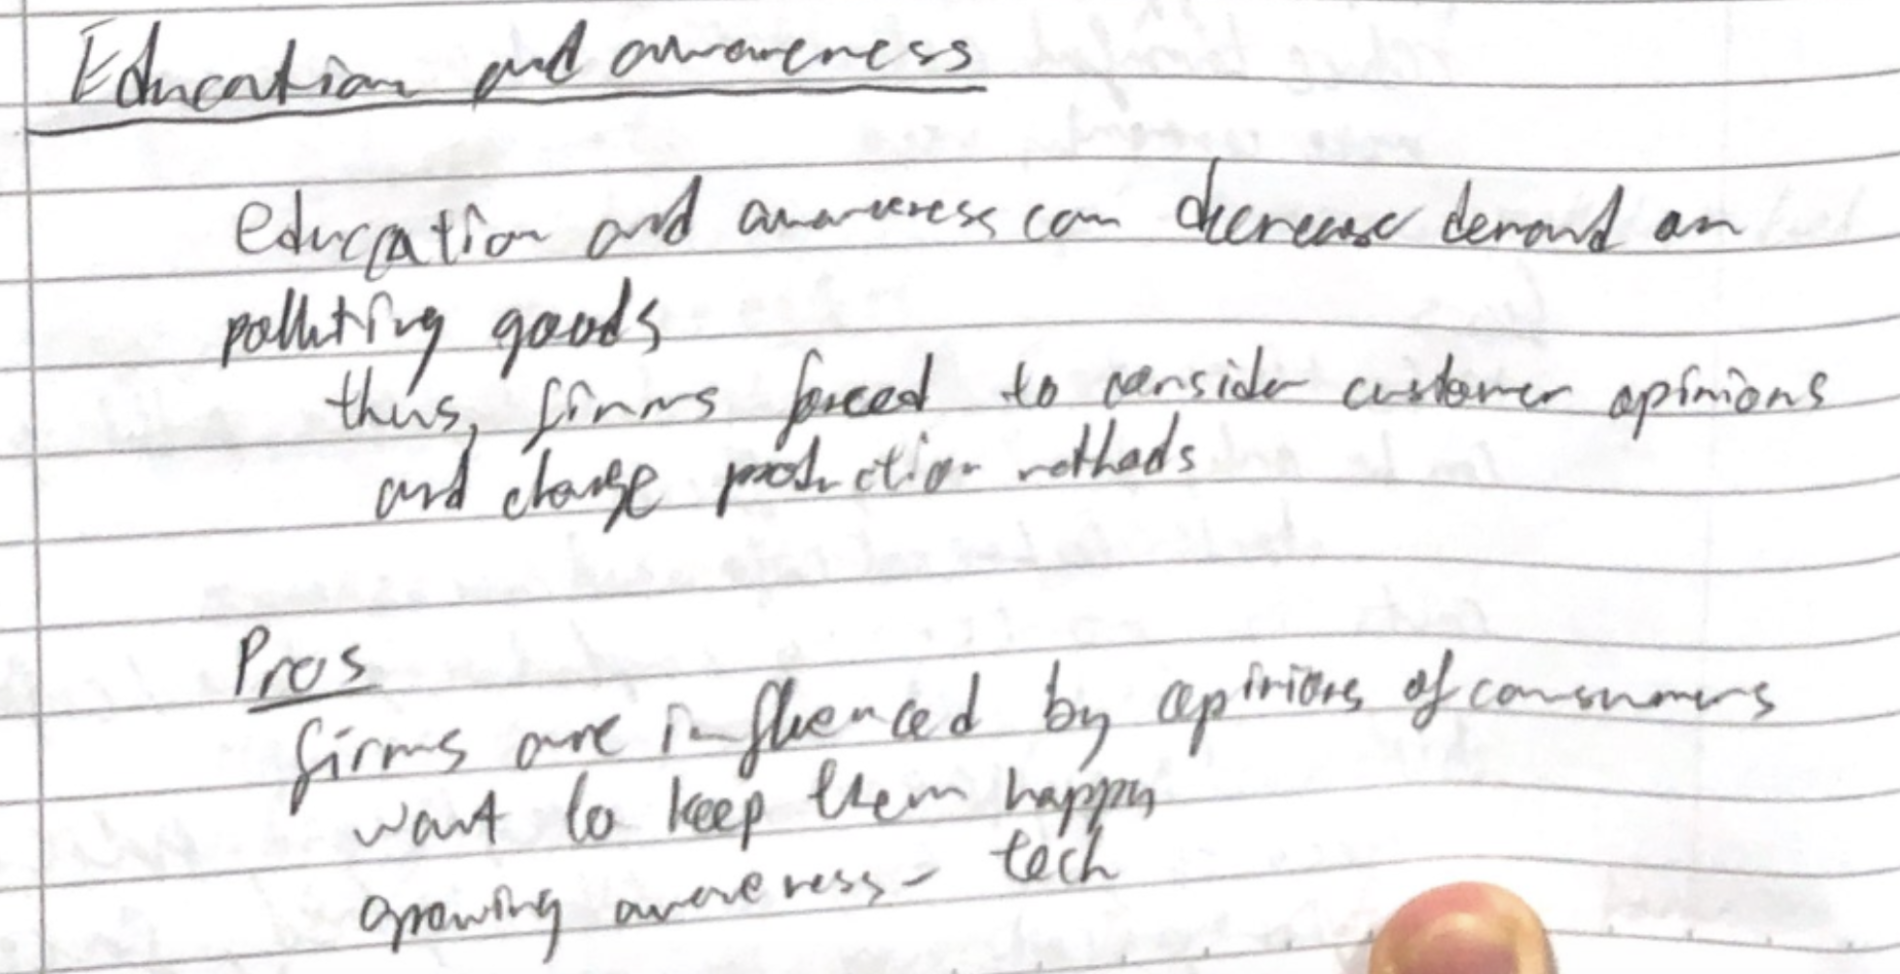 Education and awareness
education and awareness can decrease demand on
polluting goods
thus, firms forced to consider customer opinions
and change production methods
Pros
firms are influenced by opinions of consumers
want to keep them happy
growing awareness - tech